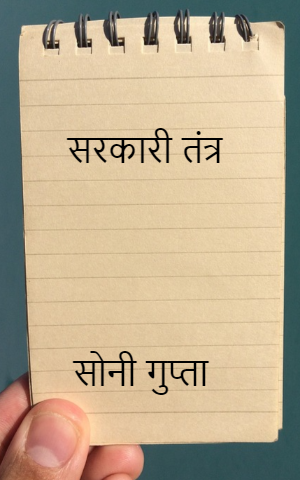 सरकारी तंत्र
सोनी गुप्ता